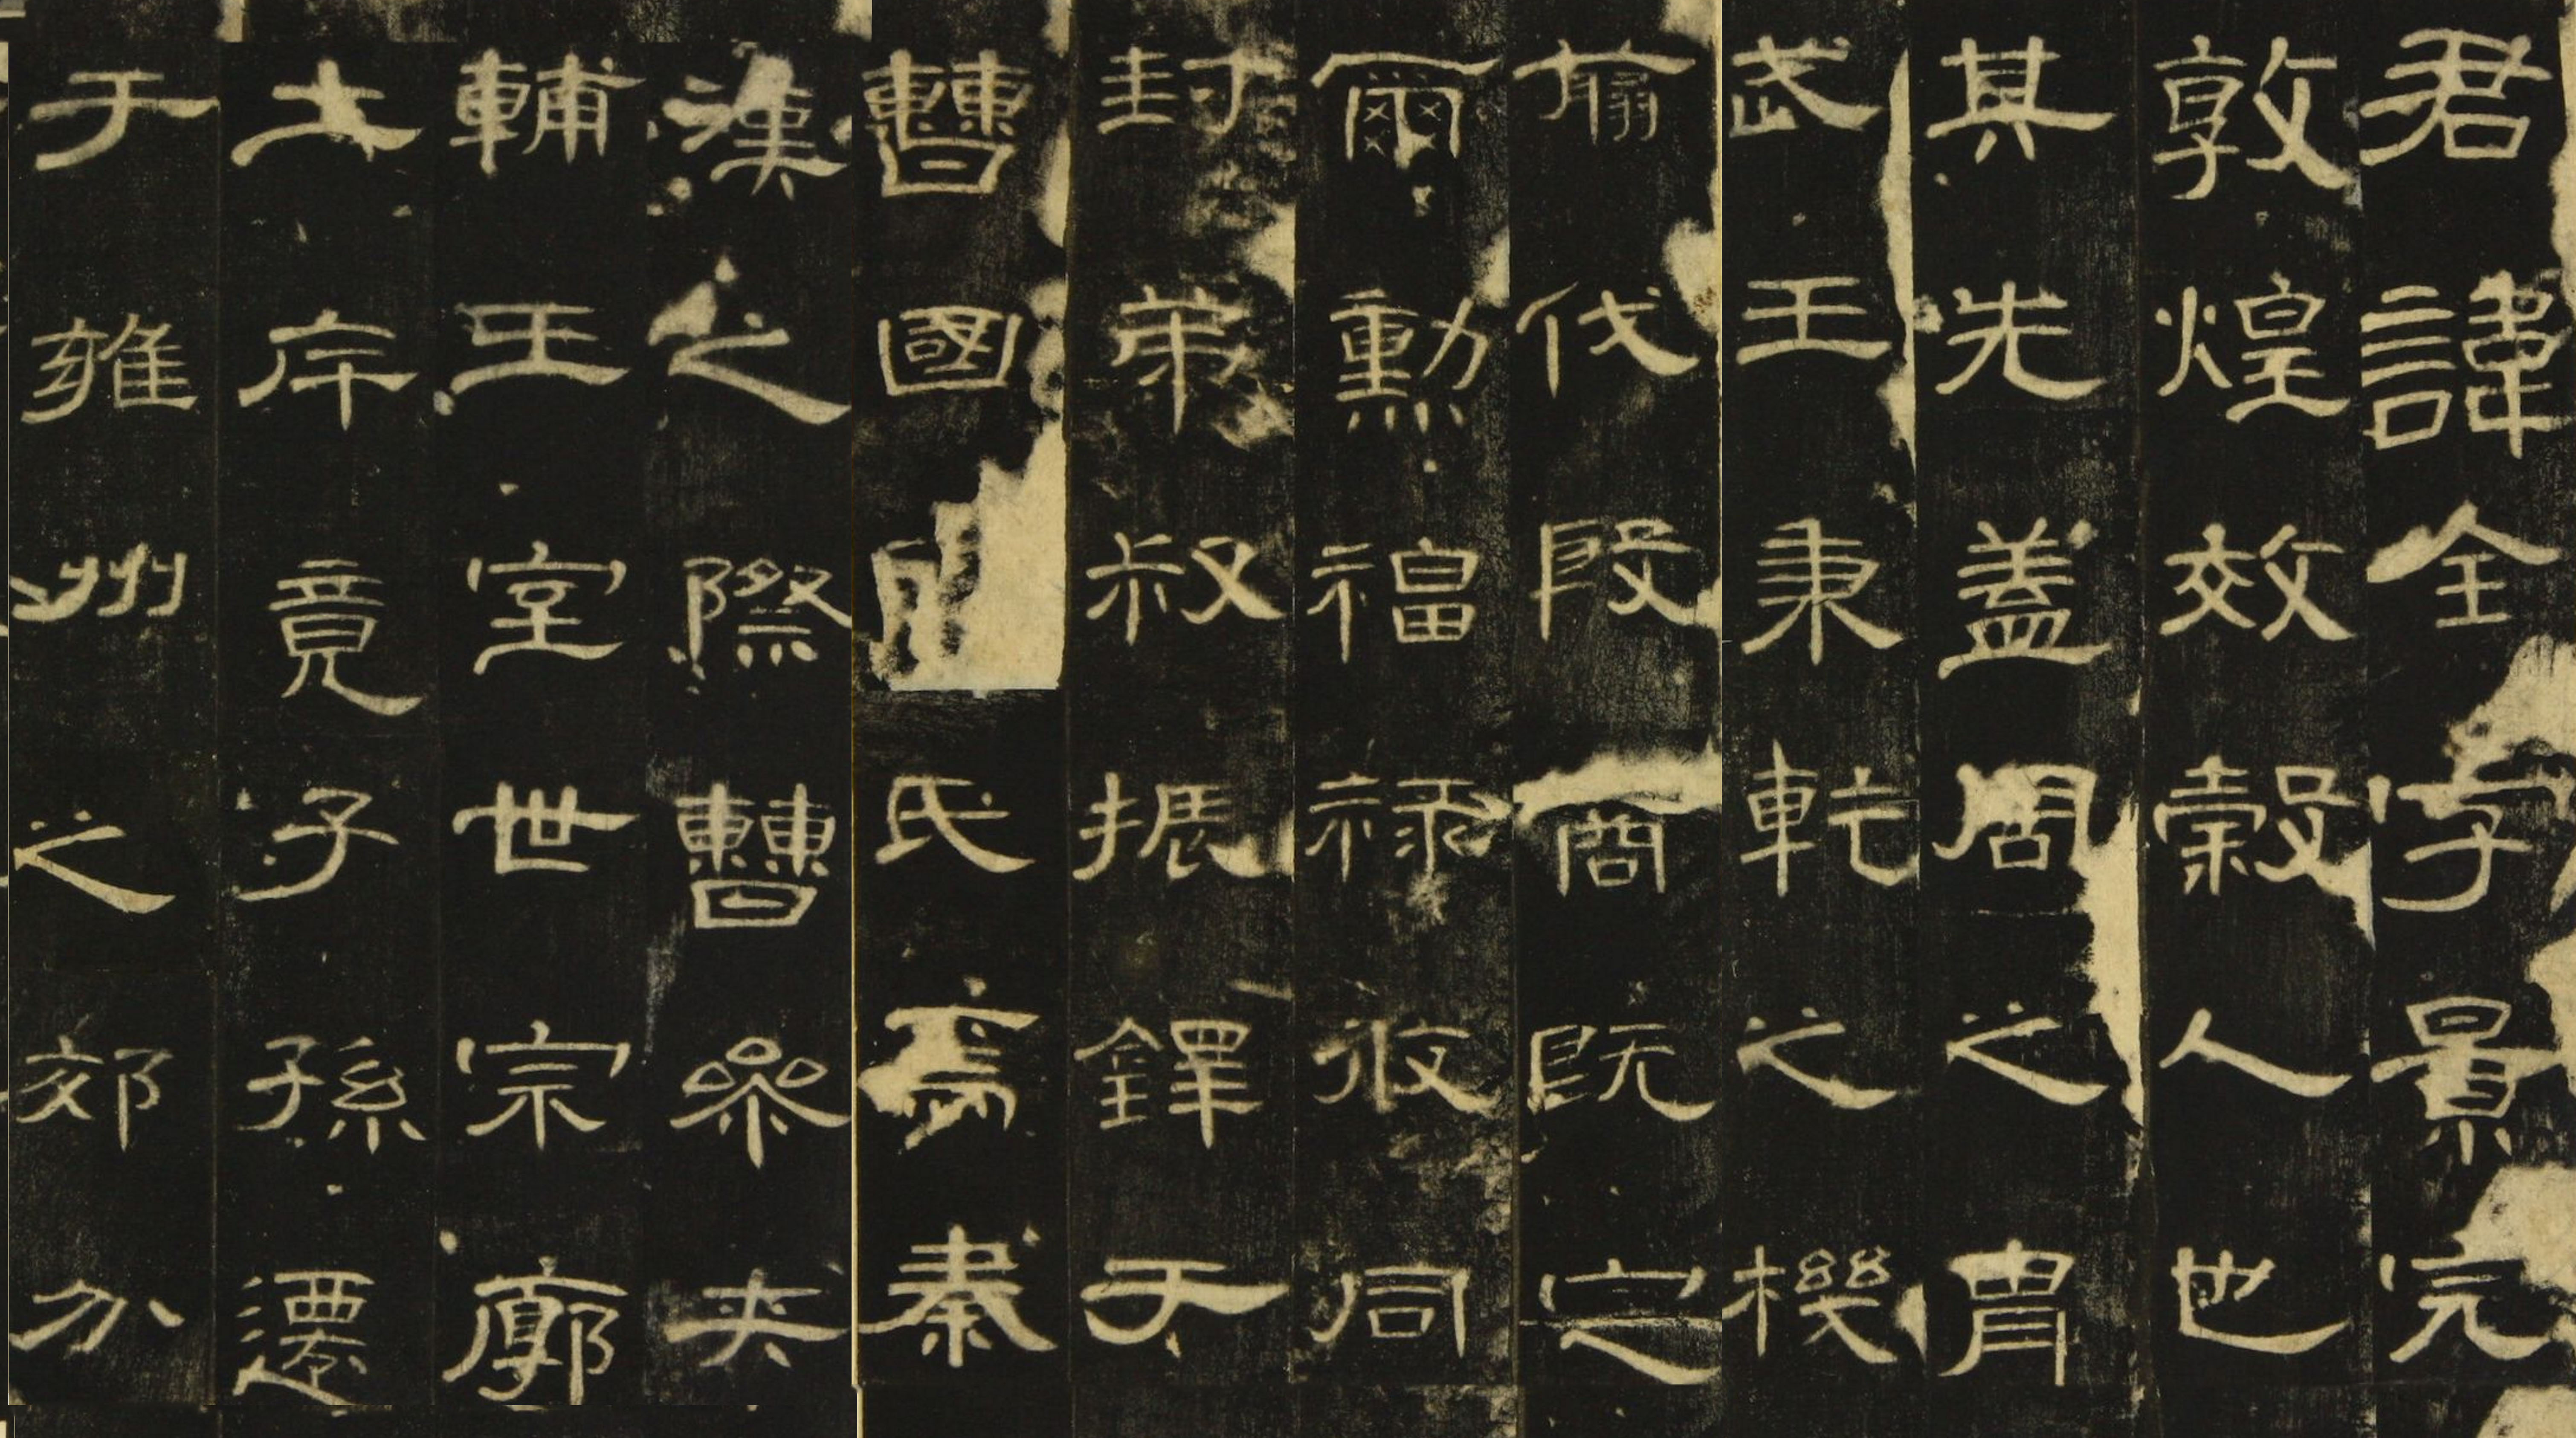 君諱全字景完
敦煌效穀人也
其先蓋周之胄
武王秉乾之機
翦伐殷商既定
爾勳福祿攸同
封弟叔振鐸于
曹國 氏焉秦
漢之際曹參夾
輔王室世宗廓
土斥竟子孫遷
于雍州之郊分